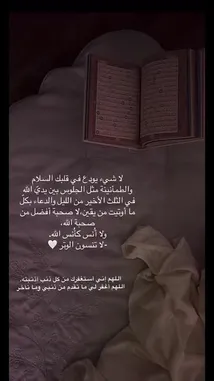 لا شيء يودع في قلبك السلام
والطمأنينة مثل الجلوس بين يديّ الله
في الثلث الأخير من الليل والدعاء بكلّ
ما أوتيت من يقين،لا صحبة أفضل من
صحبة الله،
ولا أُنس كأُنس الله.
-لا تنسون الوتِر 🤍
اللهم إني استغفرك من كل ذنب اذنبته،
اللهم اغفر لي ما تقدم من ذنبي وما تأخر